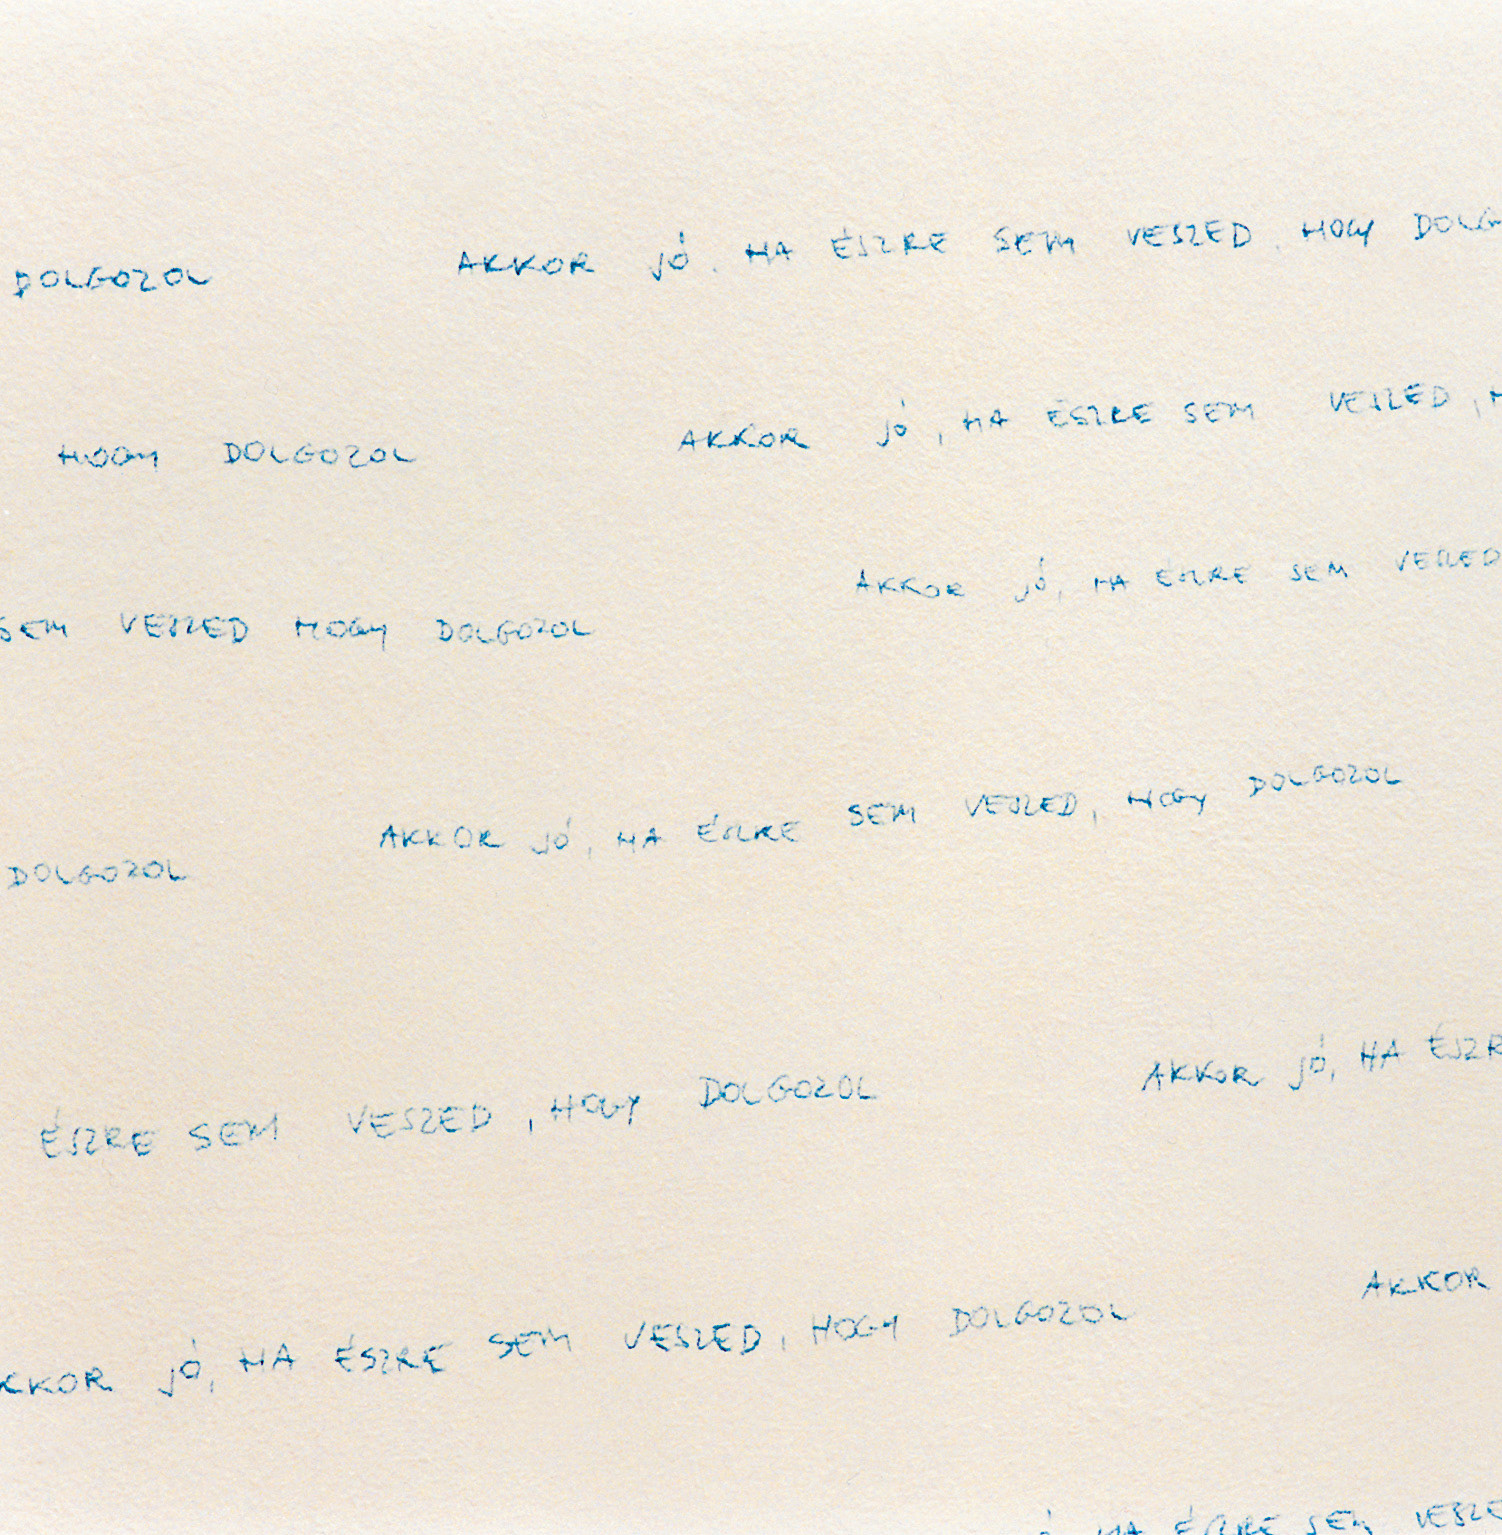 DOLGOZOL AKKOR JÓ, HA ÉSZRE SEM VESZED, HOGY DOLG
HOGY DOLGOZOL AKKOR JÓ, HA ÉSZRE SEM VESZED, H
SEM VESZED HOGY DOLGOZOL AKKOR JÓ, HA ÉSZRE SEM VESZED
DOLGOZOL AKKOR JÓ, HA ÉSZRE SEM VESZED, HOGY DOLGOZOL
ÉSZRE SEM VESZED, HOGY DOLGOZOL AKKOR JÓ, HA ÉSZR
KKOR JÓ, HA ÉSZRE SEM VESZED, HOGY DOLGOZOL AKKOR
HA ÉSZRE SEM VESZE